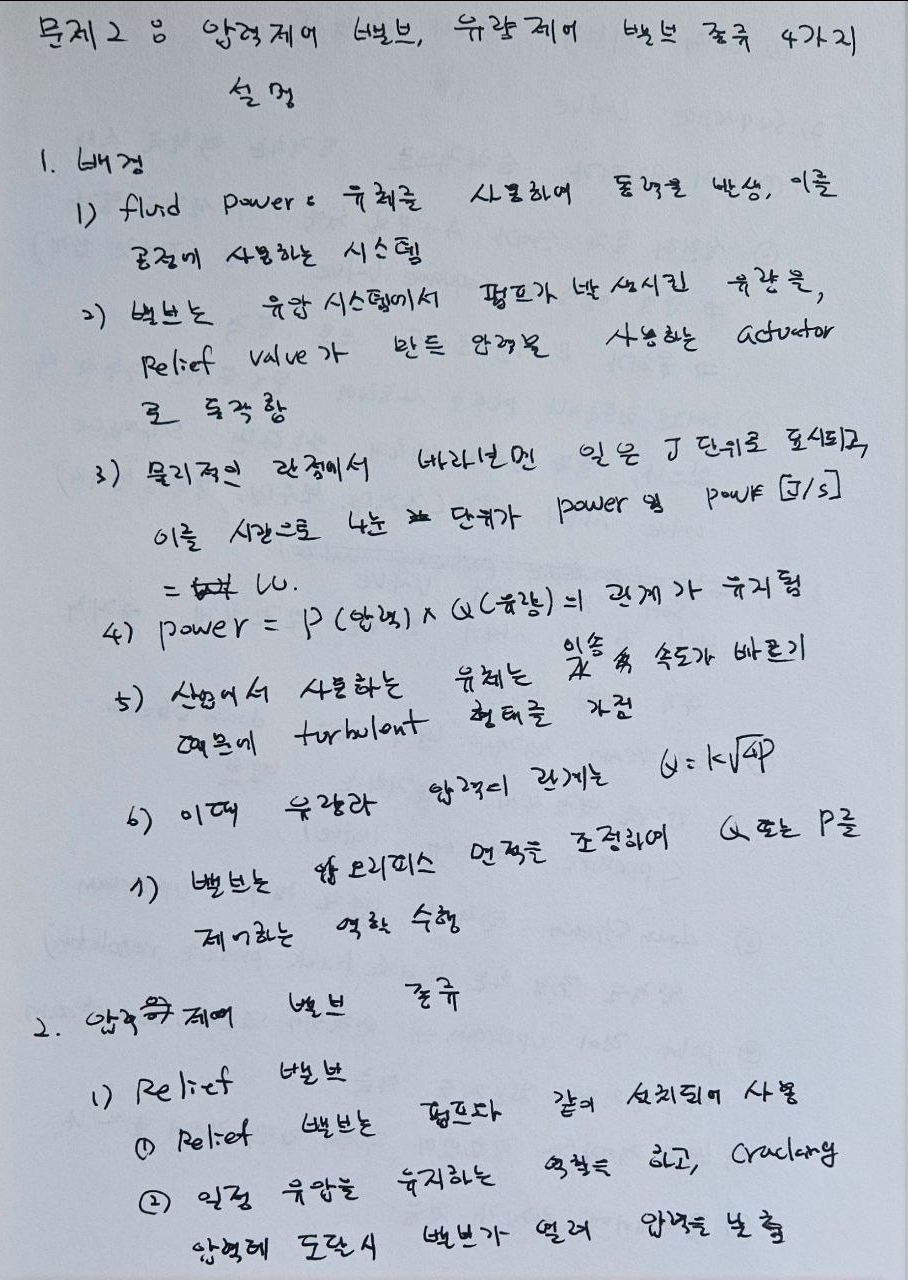 문제2 : 압력제어 밸브, 유량제어 밸브 종류 4가지
설명
1. 배경
1) fluid power : 유체를 사용하여 동력을 발생, 이를
공정에 사용하는 시스템
2) 밸브는 유압 시스템에서 펌프가 발생시킨 유량을,
Relief valve가 만든 압력을 사용하는 actuator
로 동작함
3) 물리적인 관점에서 바라보면 일은 J 단위로 표시되고,
이를 시간으로 나눈 단위가 power 임 [J/s]
= W.
4) power = P(압력) × Q(유량)의 관계가 유지됨
5) 산업에서 사용하는 유체는 이송 속도가 빠르기
때문에 turbulent 형태를 가짐
6) 이때 유량과 압력의 관계는 Q = k√ΔP
7) 밸브는 오리피스 면적을 조정하여 Q 또는 P를
제어하는 역할 수행
2. 압력 제어 밸브 종류
1) Relief 밸브
① Relief 밸브는 펌프와 같이 설치되어 사용
② 일정 유압을 유지하는 역할을 하고, cracking
압력에 도달시 밸브가 열려 압력을 낮춤